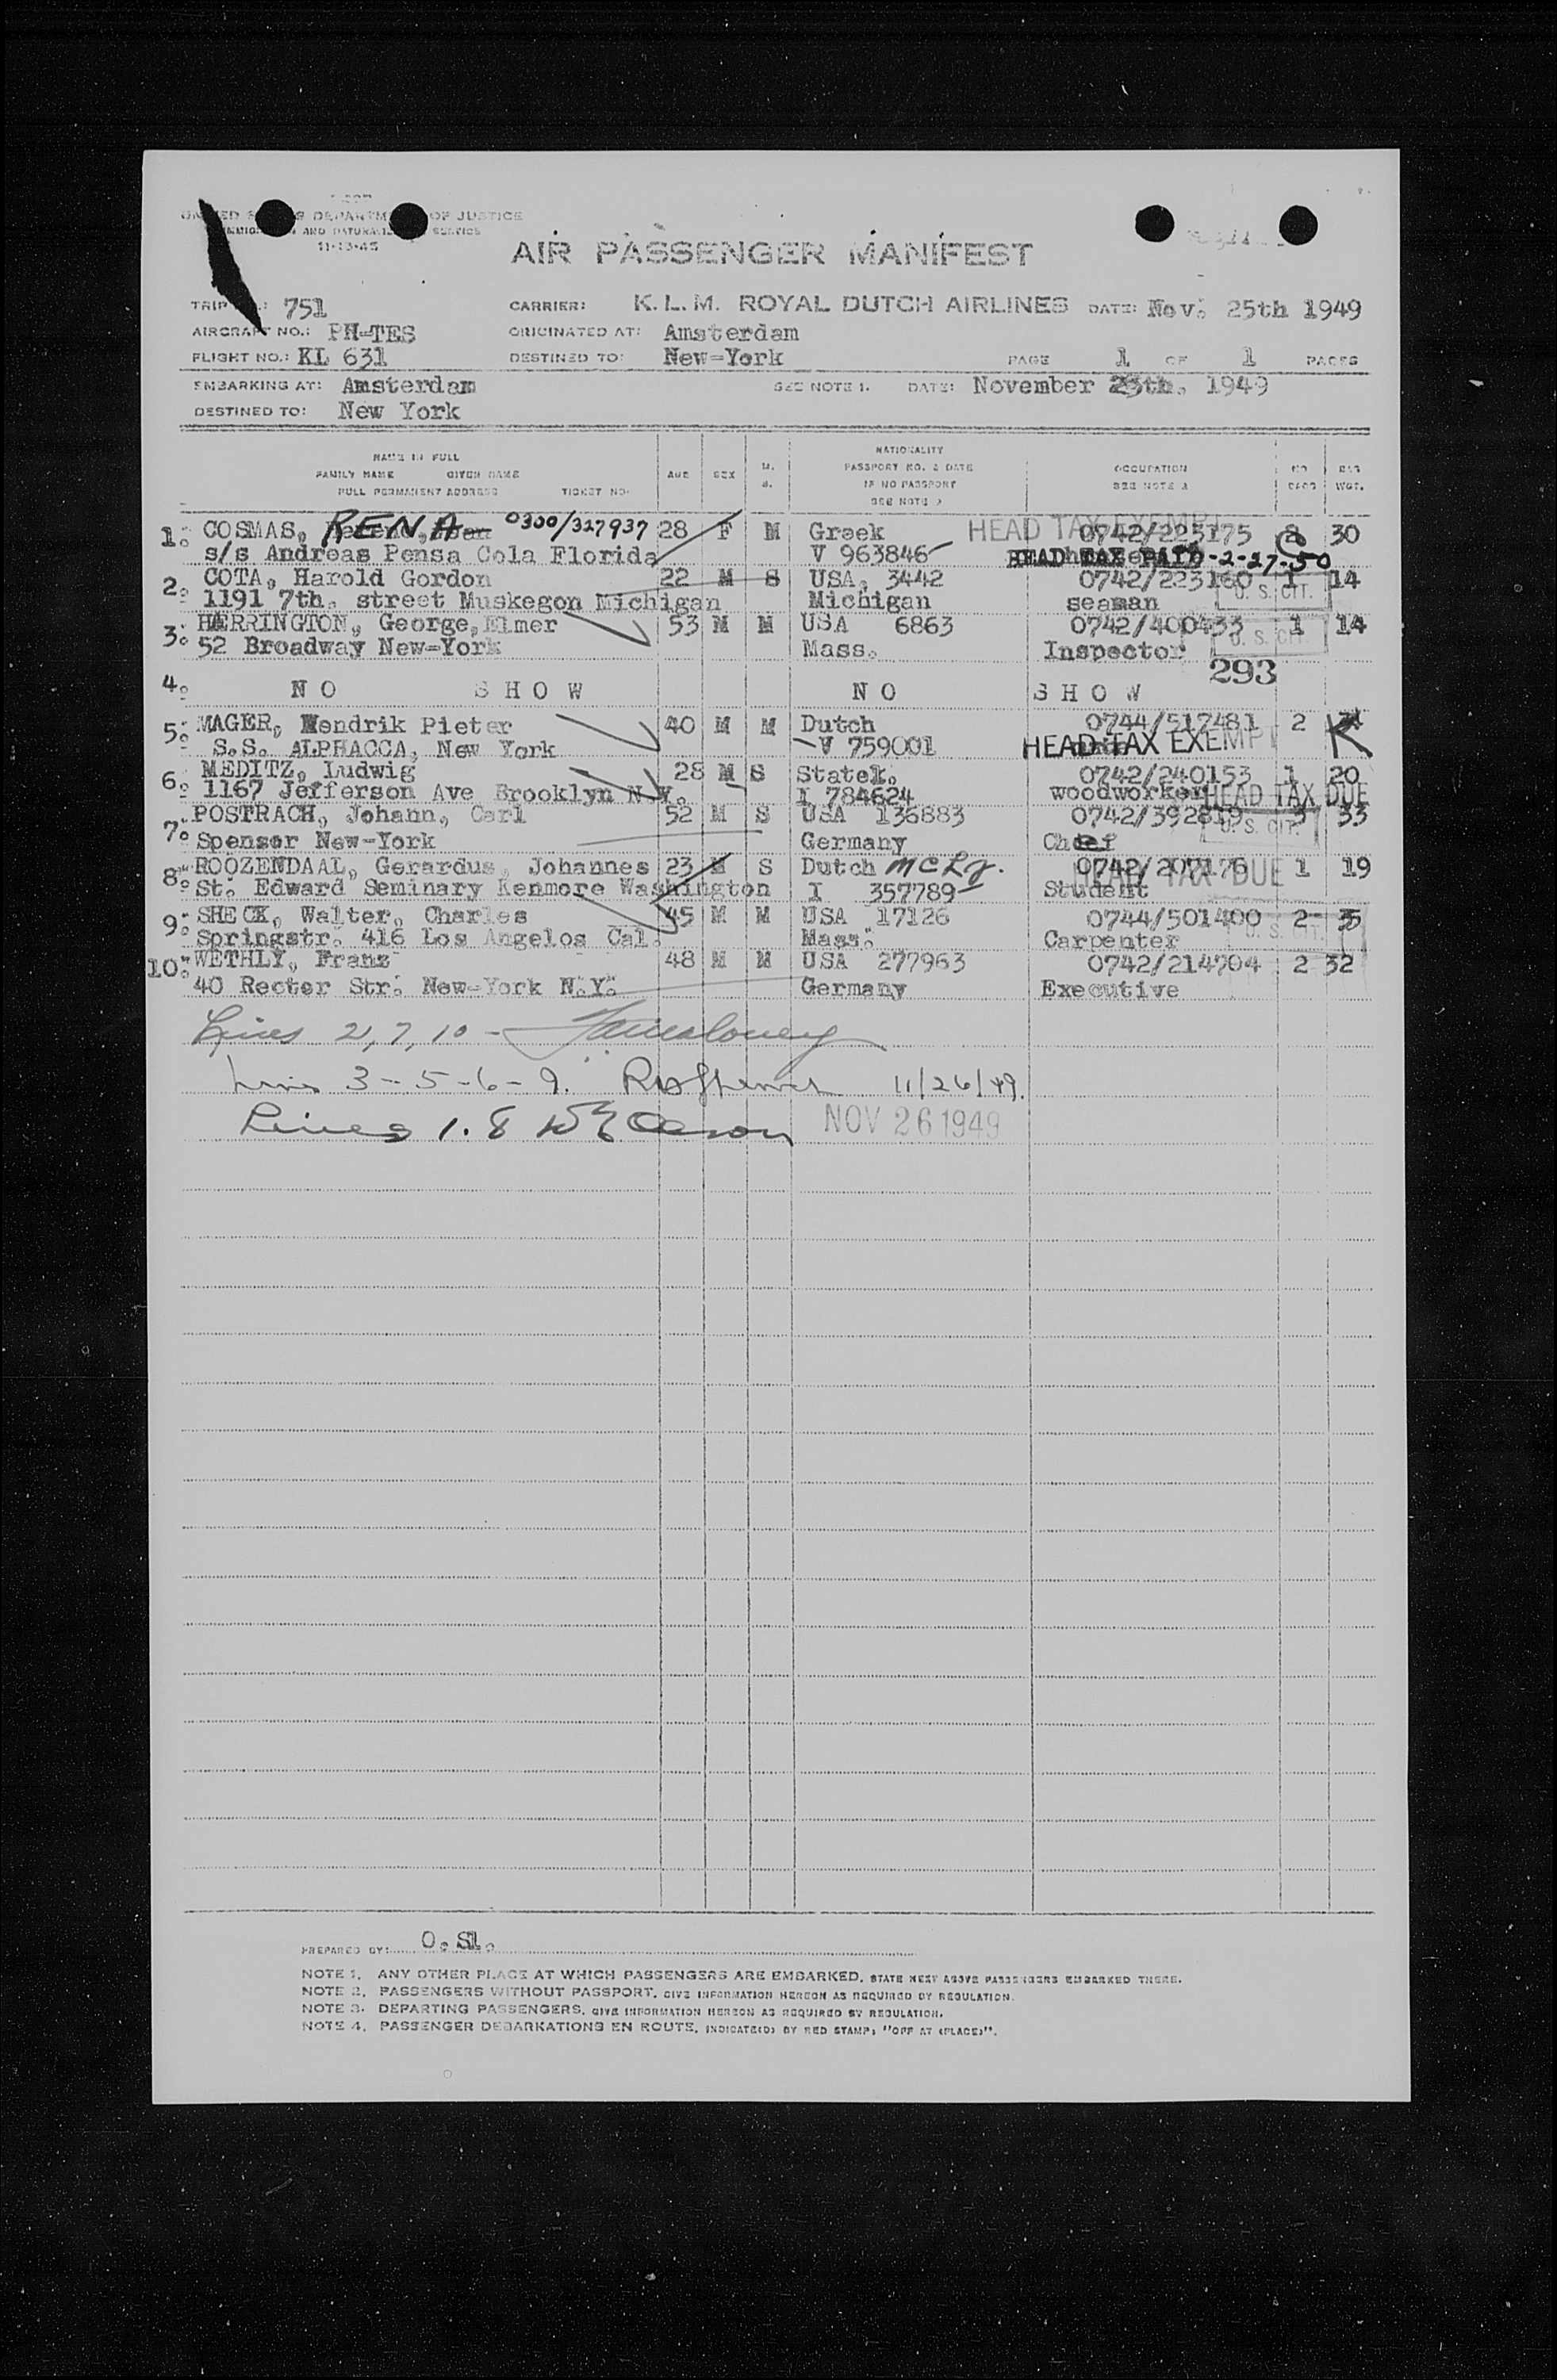 UNITED STATES DEPARTMENT OF JUSTICE
IMMIGRATION AND NATURALIZATION SERVICE
11-13-45
AIR PASSENGER MANIFEST
TRIP NO.: 751 CARRIER: K.L.M. ROYAL DUTCH AIRLINES DATE: Nov. 25th 1949
AIRCRAFT NO.: PH-TES ORIGINATED AT: Amsterdam
FLIGHT NO.: KL 631 DESTINED TO: New-York PAGE 1 OF 1 PAGES
EMBARKING AT: Amsterdam SEE NOTE 1. DATE: November 25th, 1949
DESTINED TO: New York
NAME IN FULL
FAMILY NAME GIVEN NAME
FULL PERMANENT ADDRESS TICKET NO.
AGE SEX M. S.
NATIONALITY
PASSPORT NO. & DATE
IF NO PASSPORT
SEE NOTE 2
OCCUPATION
SEE NOTE 3
NO BAGS
BAG WGT.
1. COSMAS, RENA 0300/327937 28 F M Greek HEAD TAX EXEMPT 0742/223175 2 30
s/s Andreas Pensa Cola Florida V 963846 HEAD TAX PAID-2-27-50
2. COTA, Harold Gordon 22 M S USA, 3442 0742/223160 1 14
1191 7th. street Muskegon Michigan Michigan seaman U. S. CIT.
3. HERRINGTON, George, Elmer 53 M M USA 6863 0742/400433 1 14
52 Broadway New-York Mass. Inspector U. S. CIT.
293
4. NO SHOW NO SHOW
5. MAGER, Hendrik Pieter 40 M M Dutch 0744/517481 2
S.S. ALPHACCA, New York V 759001 HEAD TAX EXEMPT
6. MEDITZ, Ludwig 28 M S Statel. 0742/240153 1 20
1167 Jefferson Ave Brooklyn N.Y. I 784624 woodworker HEAD TAX DUE
7. POSTRACH, Johann, Carl 52 M S USA 136883 0742/392819 3 33
Spenser New-York Germany Chef U. S. CIT.
8. ROOZENDAAL, Gerardus, Johannes 23 M S Dutch 0742/207176 1 19
St. Edward Seminary Kenmore Washington I 357789 Student HEAD TAX DUE
9. SHECK, Walter, Charles 45 M M USA 17126 0744/501400 2 35
Springstr. 416 Los Angelos Cal. Mass. Carpenter U. S. CIT.
10. WETHLY, Franz 48 M M USA 277963 0742/214704 2 32
40 Rector Str. New-York N.Y. Germany Executive
Lines 2, 7, 10 -
Lines 3-5-6-9. 11/26/49.
Lines 1.8 NOV 26 1949
PREPARED BY: O. Sl.
NOTE 1. ANY OTHER PLACE AT WHICH PASSENGERS ARE EMBARKED, STATE NEXT ABOVE PASSENGERS EMBARKED THERE.
NOTE 2. PASSENGERS WITHOUT PASSPORT, GIVE INFORMATION HEREON AS REQUIRED BY REGULATION.
NOTE 3. DEPARTING PASSENGERS, GIVE INFORMATION HEREON AS REQUIRED BY REGULATION.
NOTE 4. PASSENGER DEBARKATIONS EN ROUTE, INDICATE(D) BY RED STAMP; "OFF AT (PLACE)".